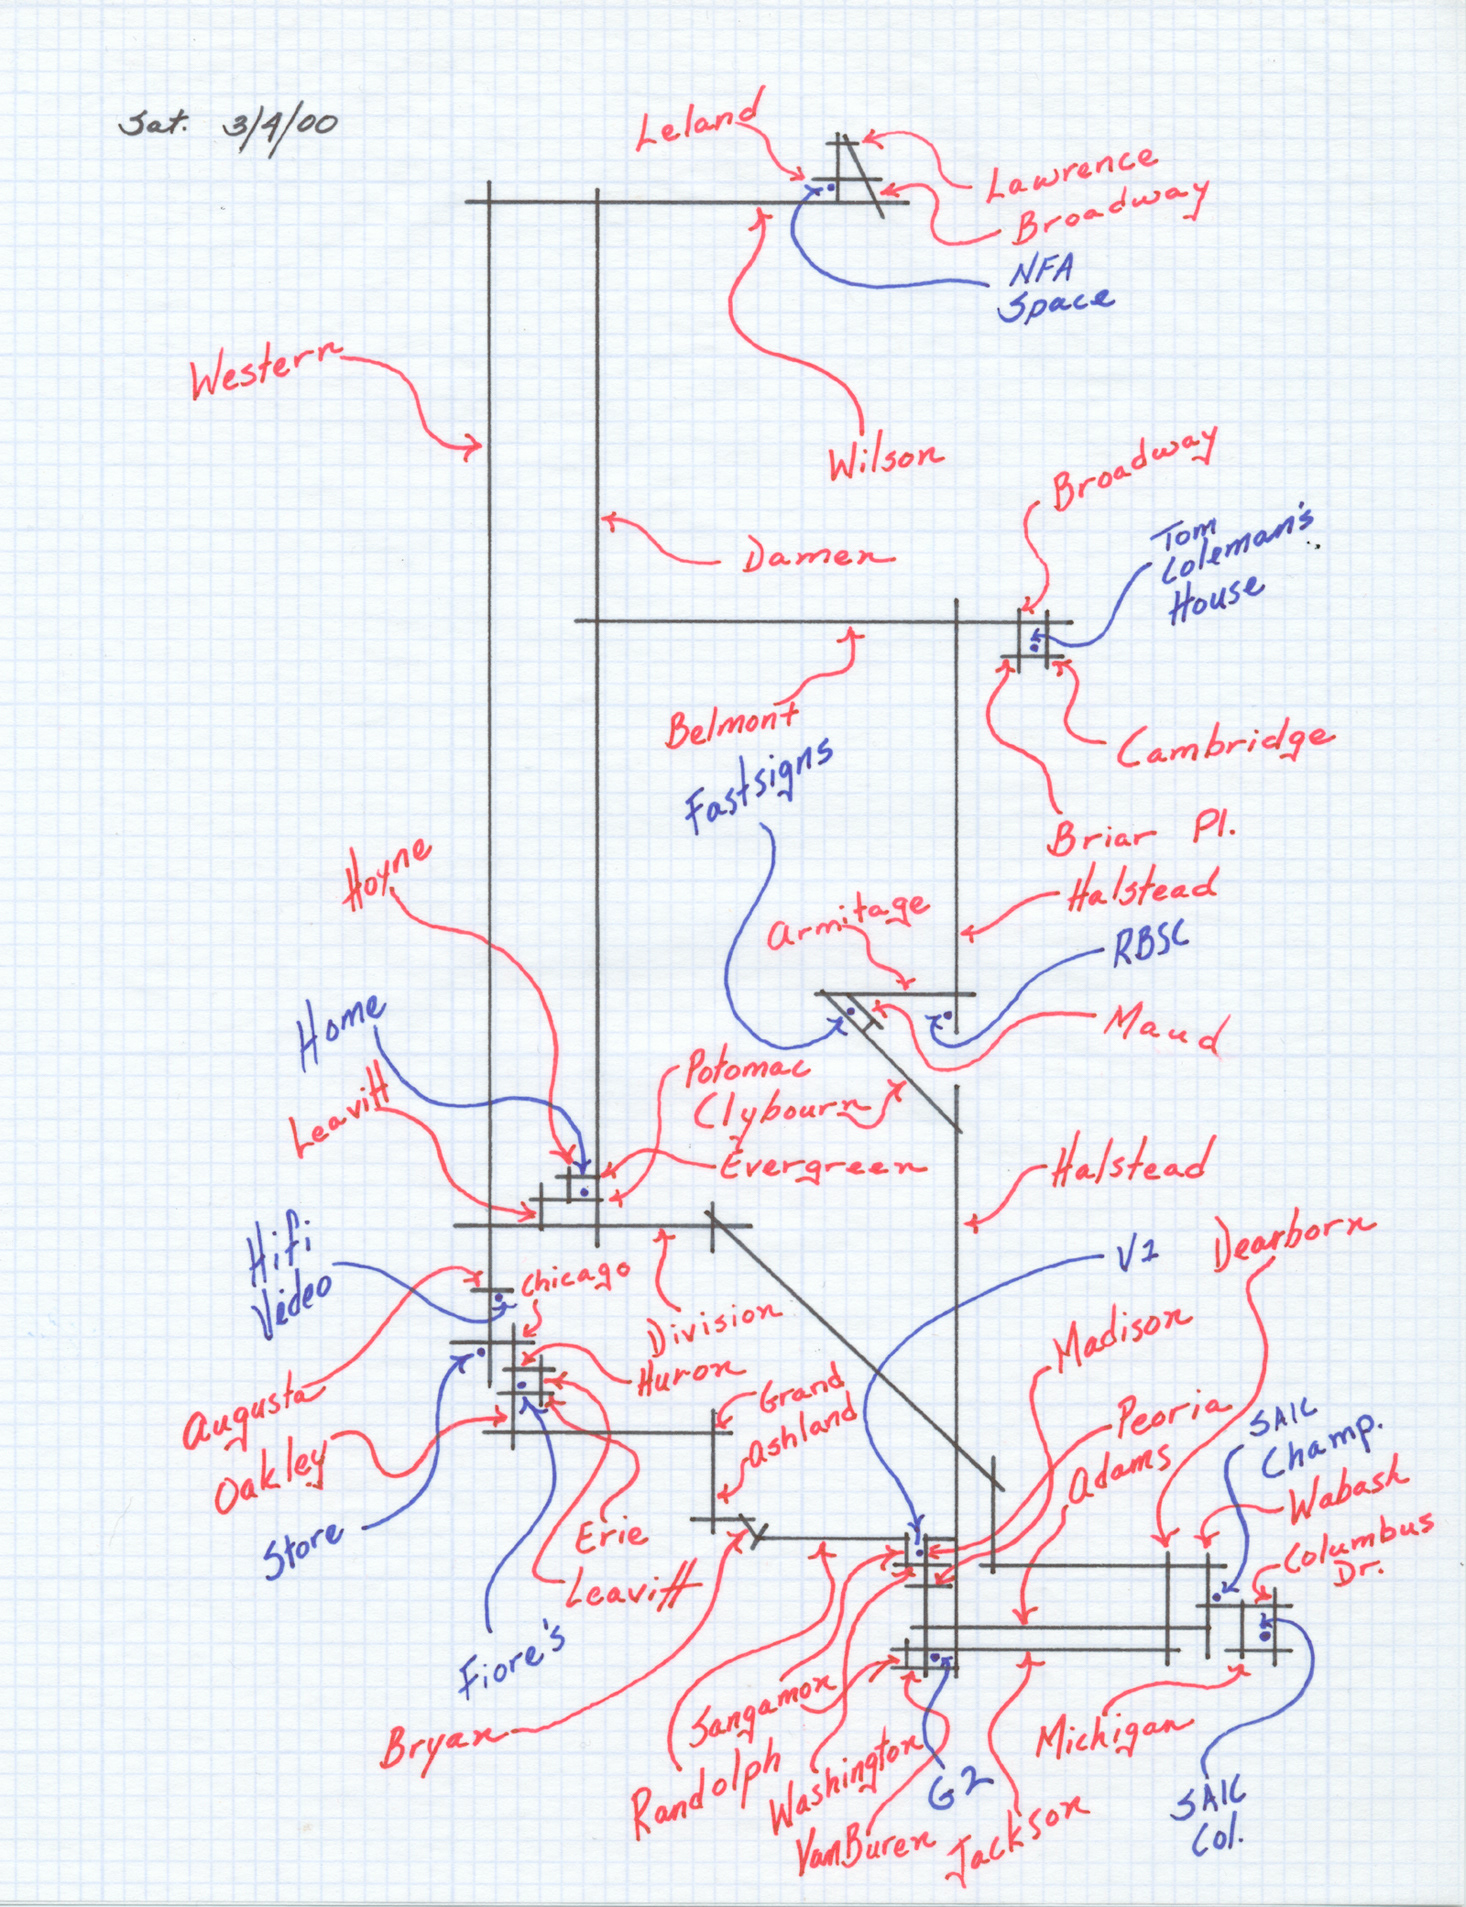 Sat. 3/4/00
Leland
Lawrence
Broadway
NFA
Space
Western
Wilson
Broadway
Damen
Tom
Coleman's
House
Belmont
Cambridge
Fastsigns
Briar Pl.
Hoyne
Halstead
Armitage
RBSC
Home
Maud
Potomac
Leavitt
Clybourn
Evergreen
Halstead
Hifi
Video
V1
Dearborn
Chicago
Division
Madison
Huron
Augusta
Grand
Ashland
Peoria
SAIC
Champ.
Oakley
Adams
Wabash
Store
Erie
Columbus
Dr.
Leavitt
Fiore's
Bryan
Sangamon
Michigan
Randolph
Washington
G2
SAIC
Col.
VanBuren
Jackson